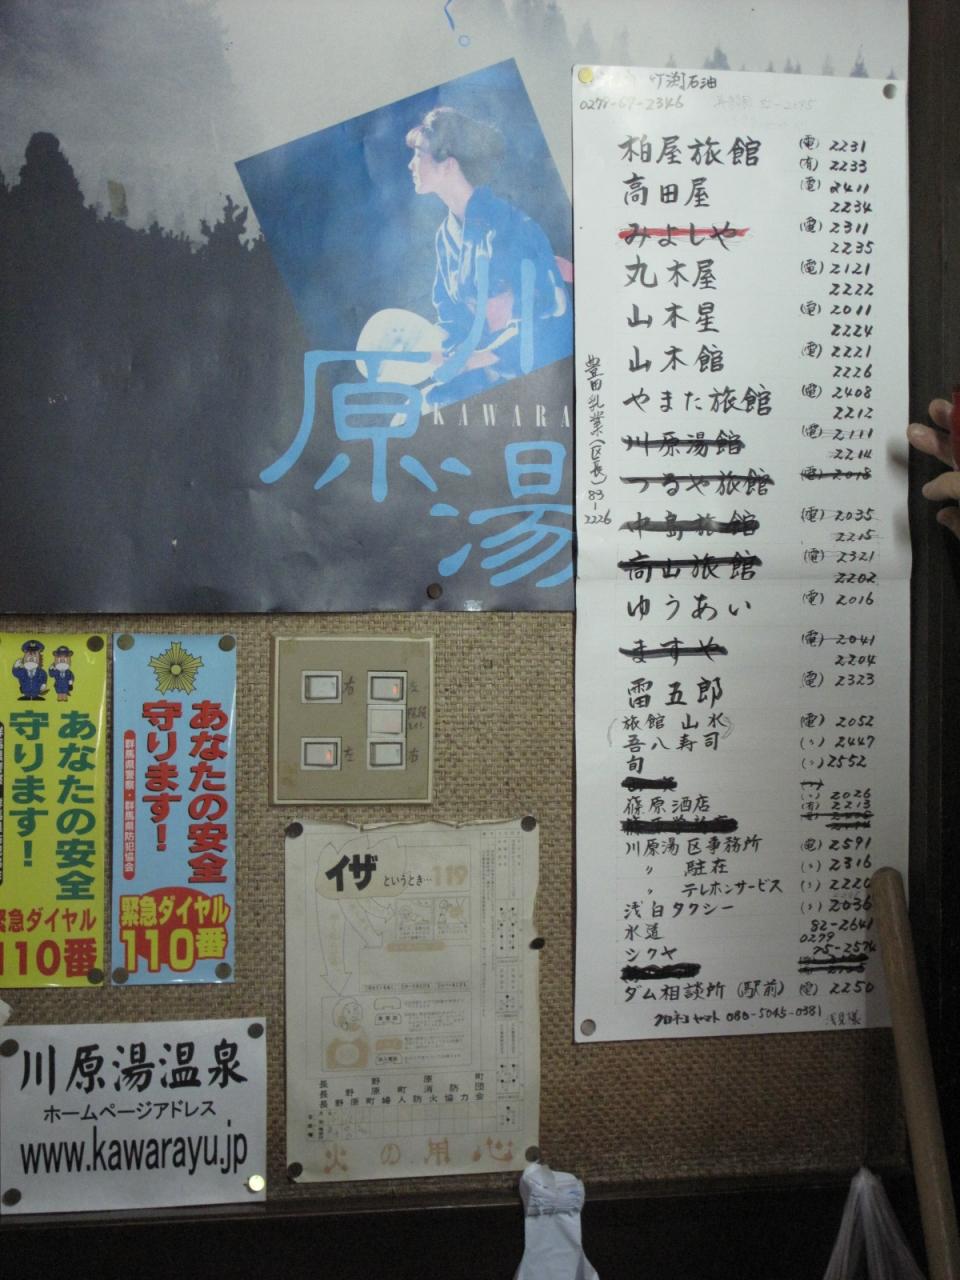 川原湯
KAWARA
町渕石油
0279-67-2346
柏屋旅館 (電) 2231
(有) 2233
高田屋 (電) 2411
2234
みよしや (電) 2311
2235
丸木屋 (電) 2121
2222
山木星 (電) 2011
2224
山木館 (電) 2221
2226
やまた旅館 (電) 2408
2212
川原湯館 (電) 2111
2214
つるや旅館 (電) 2018
中島旅館 (電) 2035
2215
高山旅館 (電) 2321
2202
ゆうあい (電) 2016
ますや (電) 2041
2204
雷五郎 (電) 2323
(旅館 山水) (電) 2052
吾八寿司 (〃) 2447
旬 (〃) 2552
2026
篠原酒店 (有) 2213
川原湯区事務所 (電) 2591
〃 駐在 (〃) 2316
〃 テレホンサービス (〃) 2220
浅白タクシー (〃) 2036
水道 82-2641
0279
シクヤ 75-2574
ダム相談所 (駅前) (電) 2250
クロネコヤマト 080-5045-0381
豊田乳業(区長)83-2226
あなたの安全
守ります!
緊急ダイヤル
110番
あなたの安全
守ります!
群馬県警察・群馬県防犯協会
緊急ダイヤル
110番
右
左
左
右
イザ というとき…119
長野原町
長野原町消防団
長野原町婦人防火協力会
火の用心
川原湯温泉
ホームページアドレス
www.kawarayu.jp